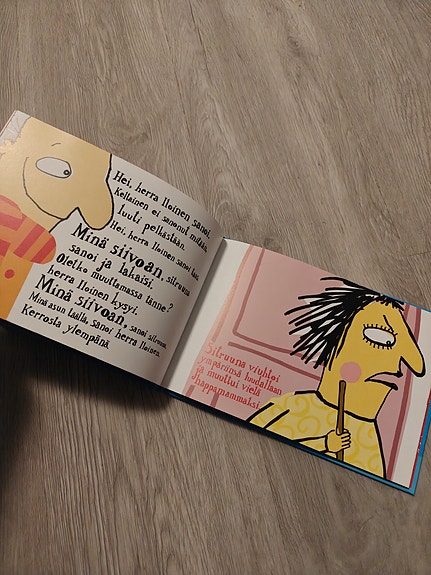 Hei, herra Iloinen sanoi.
Keltainen ei sanonut mitään,
luuti pelkästään.
Hei, herra Iloinen sanoi taas.
Minä siivoan, sitruuna
sanoi ja lakaisi.
Oletko muuttamassa tänne?
herra Iloinen kysyi.
Minä siivoan, sanoi sitruuna.
Minä asun täällä, sanoi herra Iloinen.
Kerrosta ylempänä.
Sitruuna viuhtoi
ympäriinsä luudallaan
ja muuttui vielä
happamammaksi.